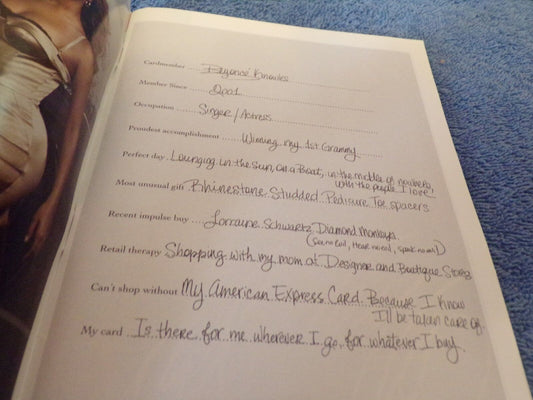 Cardmember Beyoncé Knowles
Member Since 2001
Occupation Singer/Actress
Proudest accomplishment Winning my 1st Grammy
Perfect day Lounging in the sun, on a Boat, in the middle of nowhere,
with the people I love!
Most unusual gift Rhinestone Studded Pedicure Toe spacers
Recent impulse buy Lorraine Schwartz Diamond Monkeys.
(See no Evil, Hear no evil, speak no evil)
Retail therapy Shopping with my mom at Designer and Boutique Stores
Can't shop without My American Express Card. Because I know
I'll be taken care of.
My card Is there for me wherever I go, for whatever I buy.